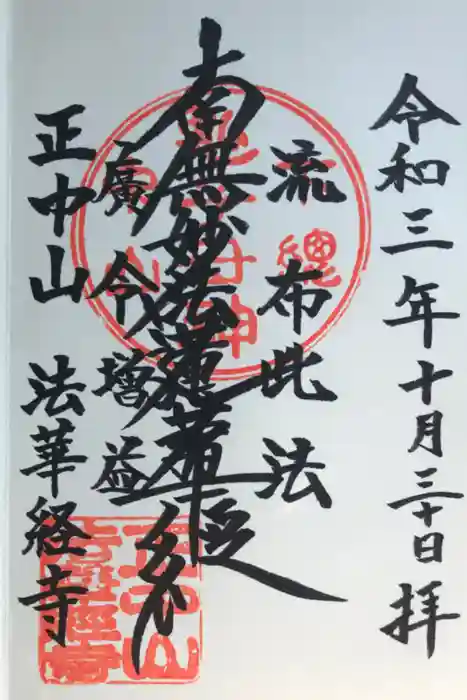 令和三年十月三十日拝
流布此法
南無妙法蓮華経
廣令増益
正中山 法華経寺